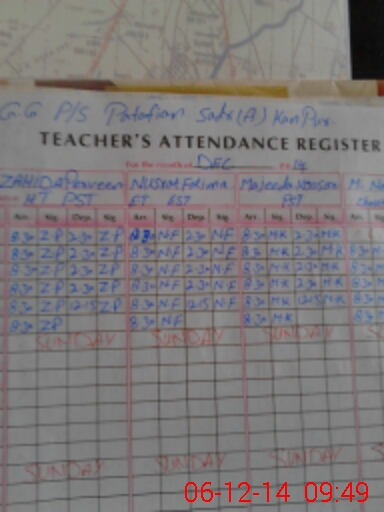 GG P/S Patafian Sadr (A) KanPur.
TEACHER'S ATTENDANCE REGISTER
For the month of DEC 14
ZAHIDA Parveen NUSrat Fatima Majeeda
HT PST ET EST PST
Arr. Sig. Dep. Sig. Arr. Sig. Dep. Sig. Arr. Sig. Dep. Sig. Arr.
8:30 ZP 2:30 ZP 8:30 N.F 2:30 N.F 8:30 M.K 2:30 M.K
8:30 ZP 2:30 ZP 8:30 N.F 2:30 N.F 8:30 M.K 2:30 M.K 8:30
8:30 ZP 2:30 ZP 8:30 N.F 2:30 N.F 8:30 M.K 2:30 M.K 8:30
8:30 ZP 2:30 ZP 8:30 N.F 2:30 N.F 8:30 M.K 2:30 M.K 8:30
8:30 ZP 12:15 ZP 8:30 N.F 12:15 N.F 8:30 M.K 12:15 M.K 8:30
8:30 ZP 8:30 N.F 8:30 M.K 8:30
SUNDAY SUNDAY SUNDAY
SUNDAY SUNDAY SUNDAY
06-12-14 09:49